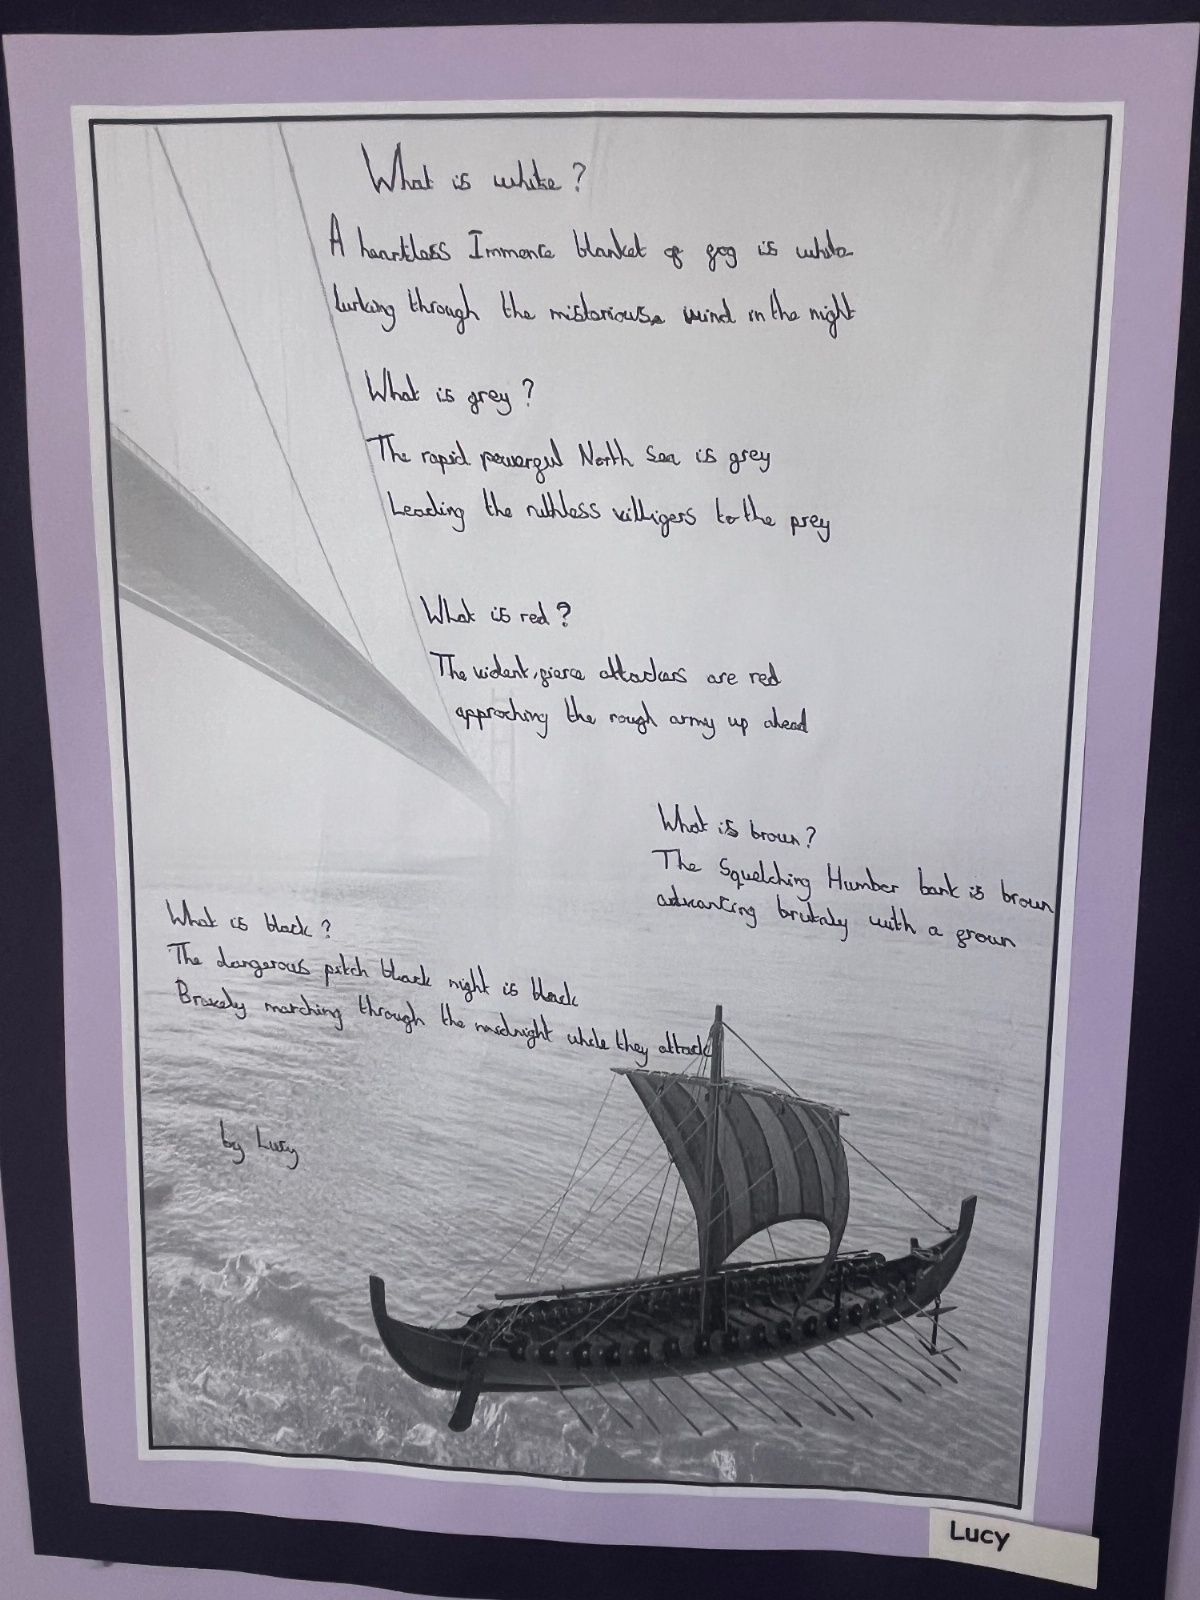 What is white?
A heartless Immence blanket of fog is white
lurking through the misteriouse wind in the night
What is grey?
The rapid powerful North Sea is grey
Leading the ruthless villigers to the prey
What is red?
The violent, fierce attackers are red
approching the rough army up ahead
What is brown?
The Squelching Humber bank is brown
advancing brutaly with a frown
What is black?
The dangerous pitch black night is black
Bravely marching through the midnight while they attack
by Lucy
Lucy